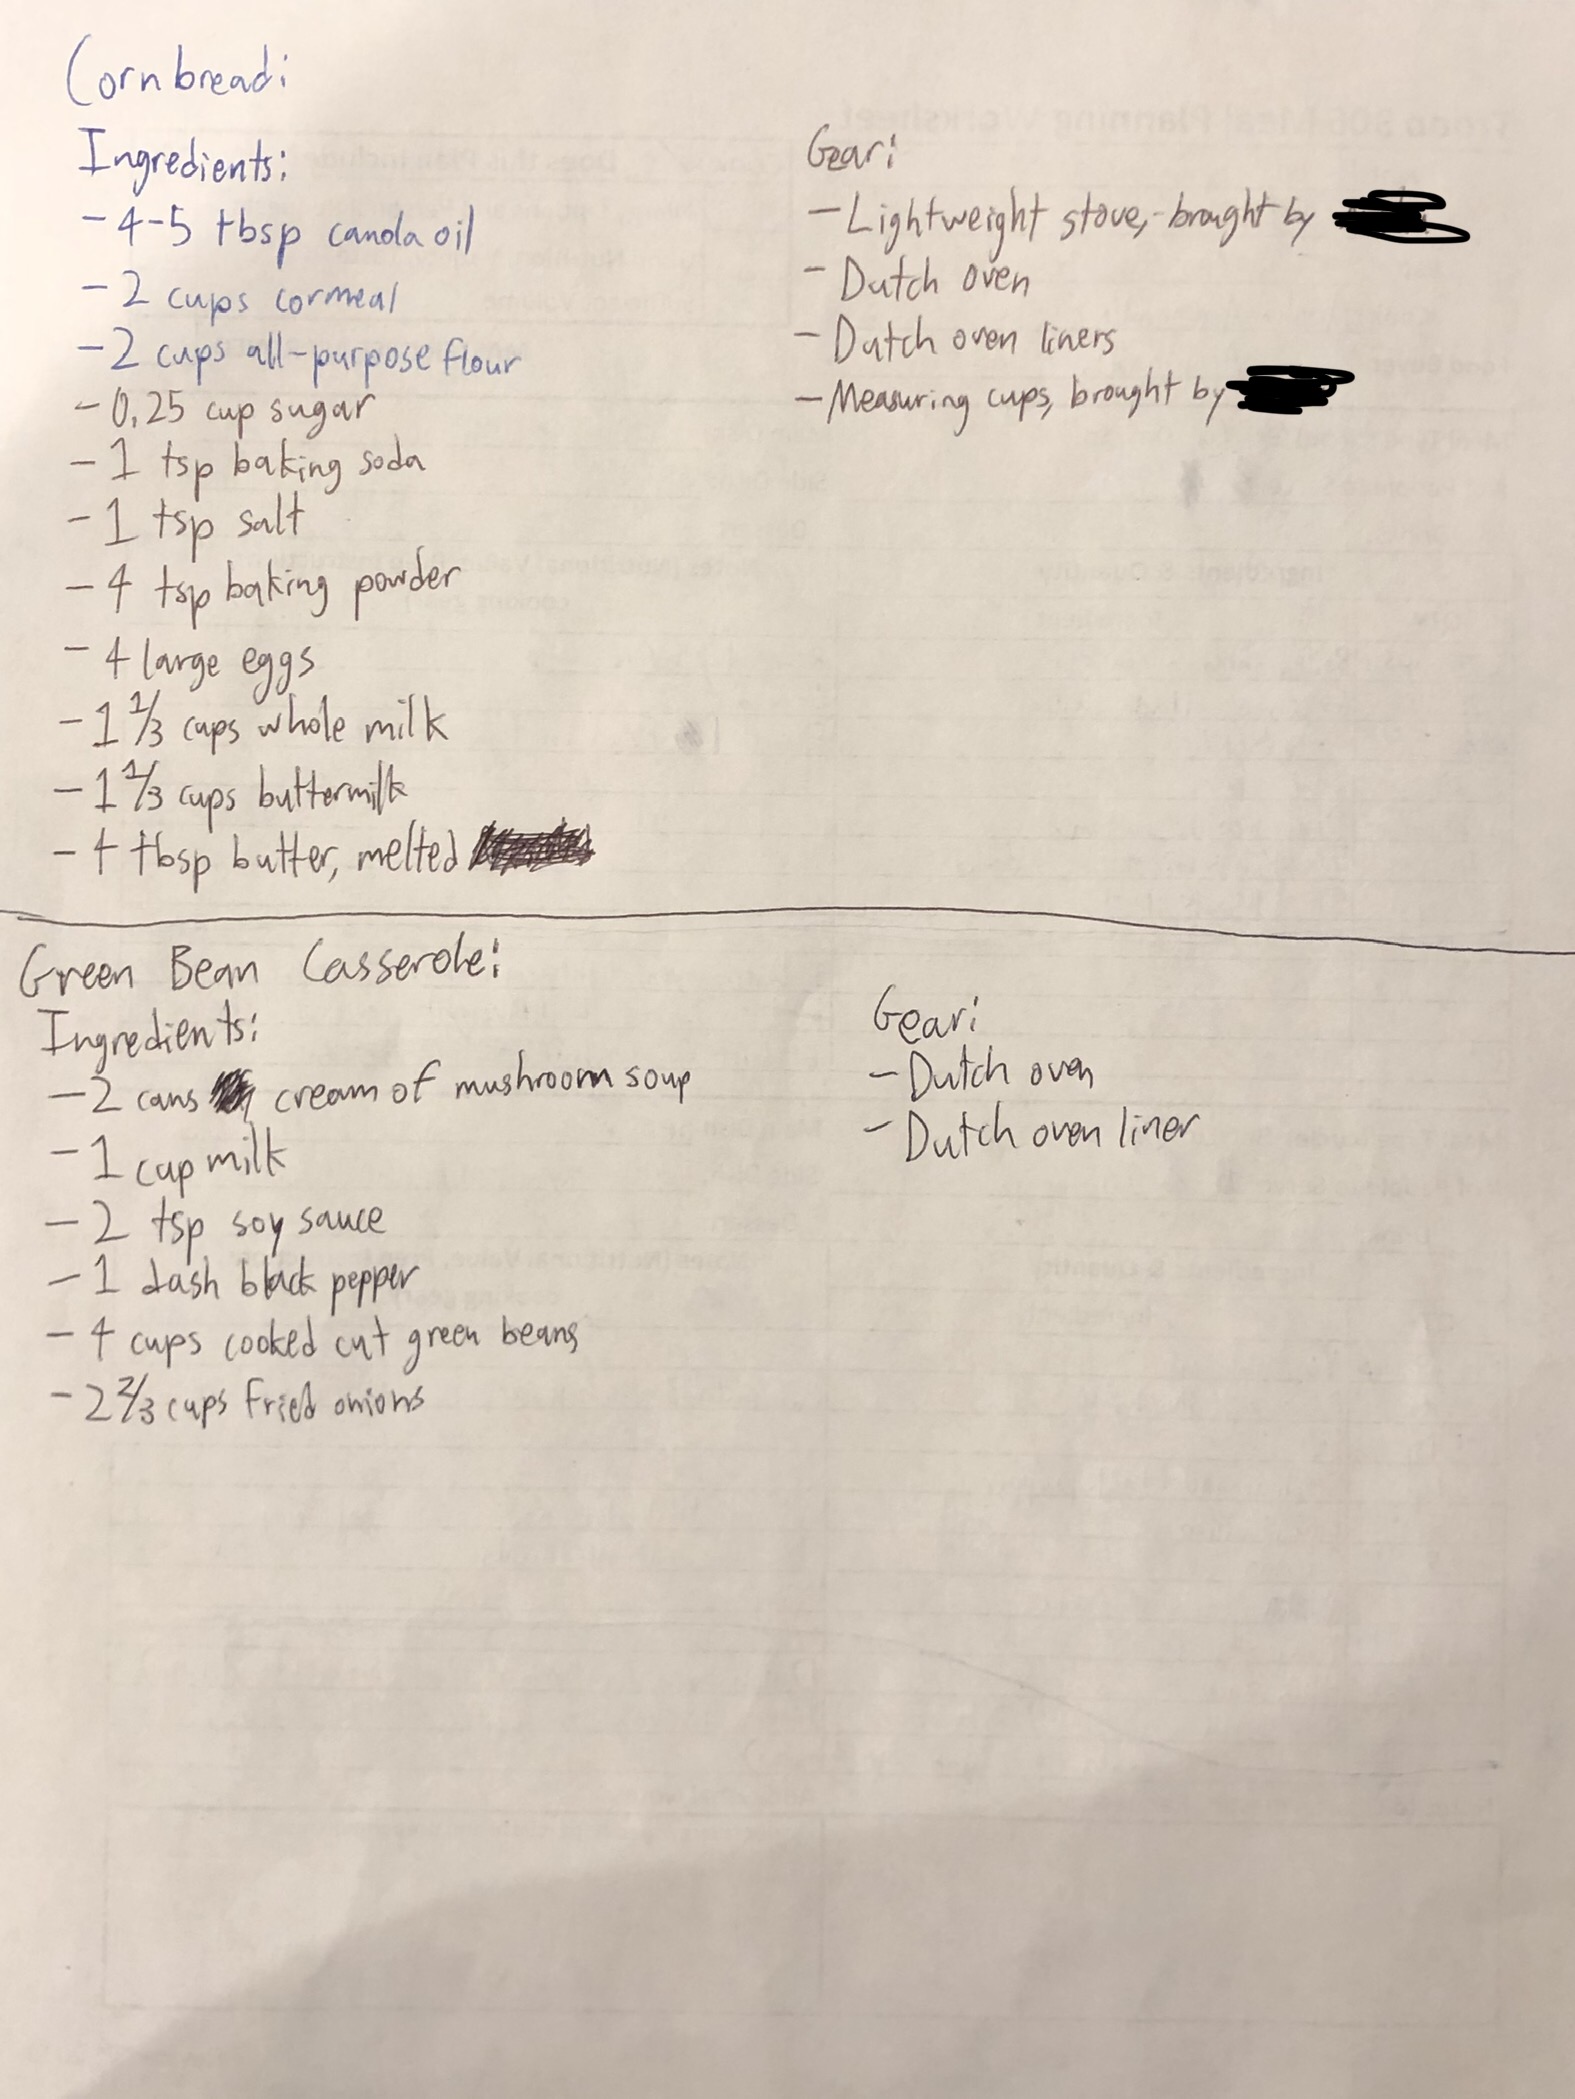 Cornbread:
Ingredients:
- 4-5 tbsp canola oil
- 2 cups cormeal
- 2 cups all-purpose flour
- 0.25 cup sugar
- 1 tsp baking soda
- 1 tsp salt
- 4 tsp baking powder
- 4 large eggs
- 1 1/3 cups whole milk
- 1 1/3 cups buttermilk
- 4 tbsp butter, melted
Gear:
- Lightweight stove, brought by
- Dutch oven
- Dutch oven liners
- Measuring cups, brought by
Green Bean Casserole:
Ingredients:
- 2 cans cream of mushroom soup
- 1 cup milk
- 2 tsp soy sauce
- 1 dash black pepper
- 4 cups cooked cut green beans
- 2 2/3 cups fried onions
Gear:
- Dutch oven
- Dutch oven liner